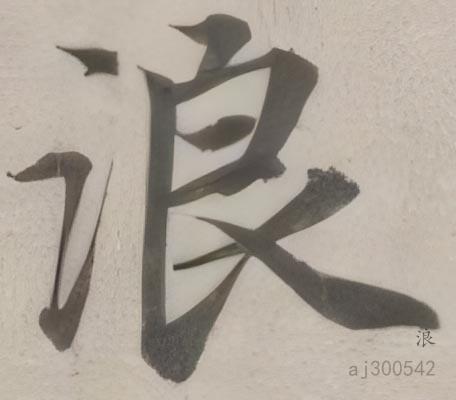 浪
浪
aj300542